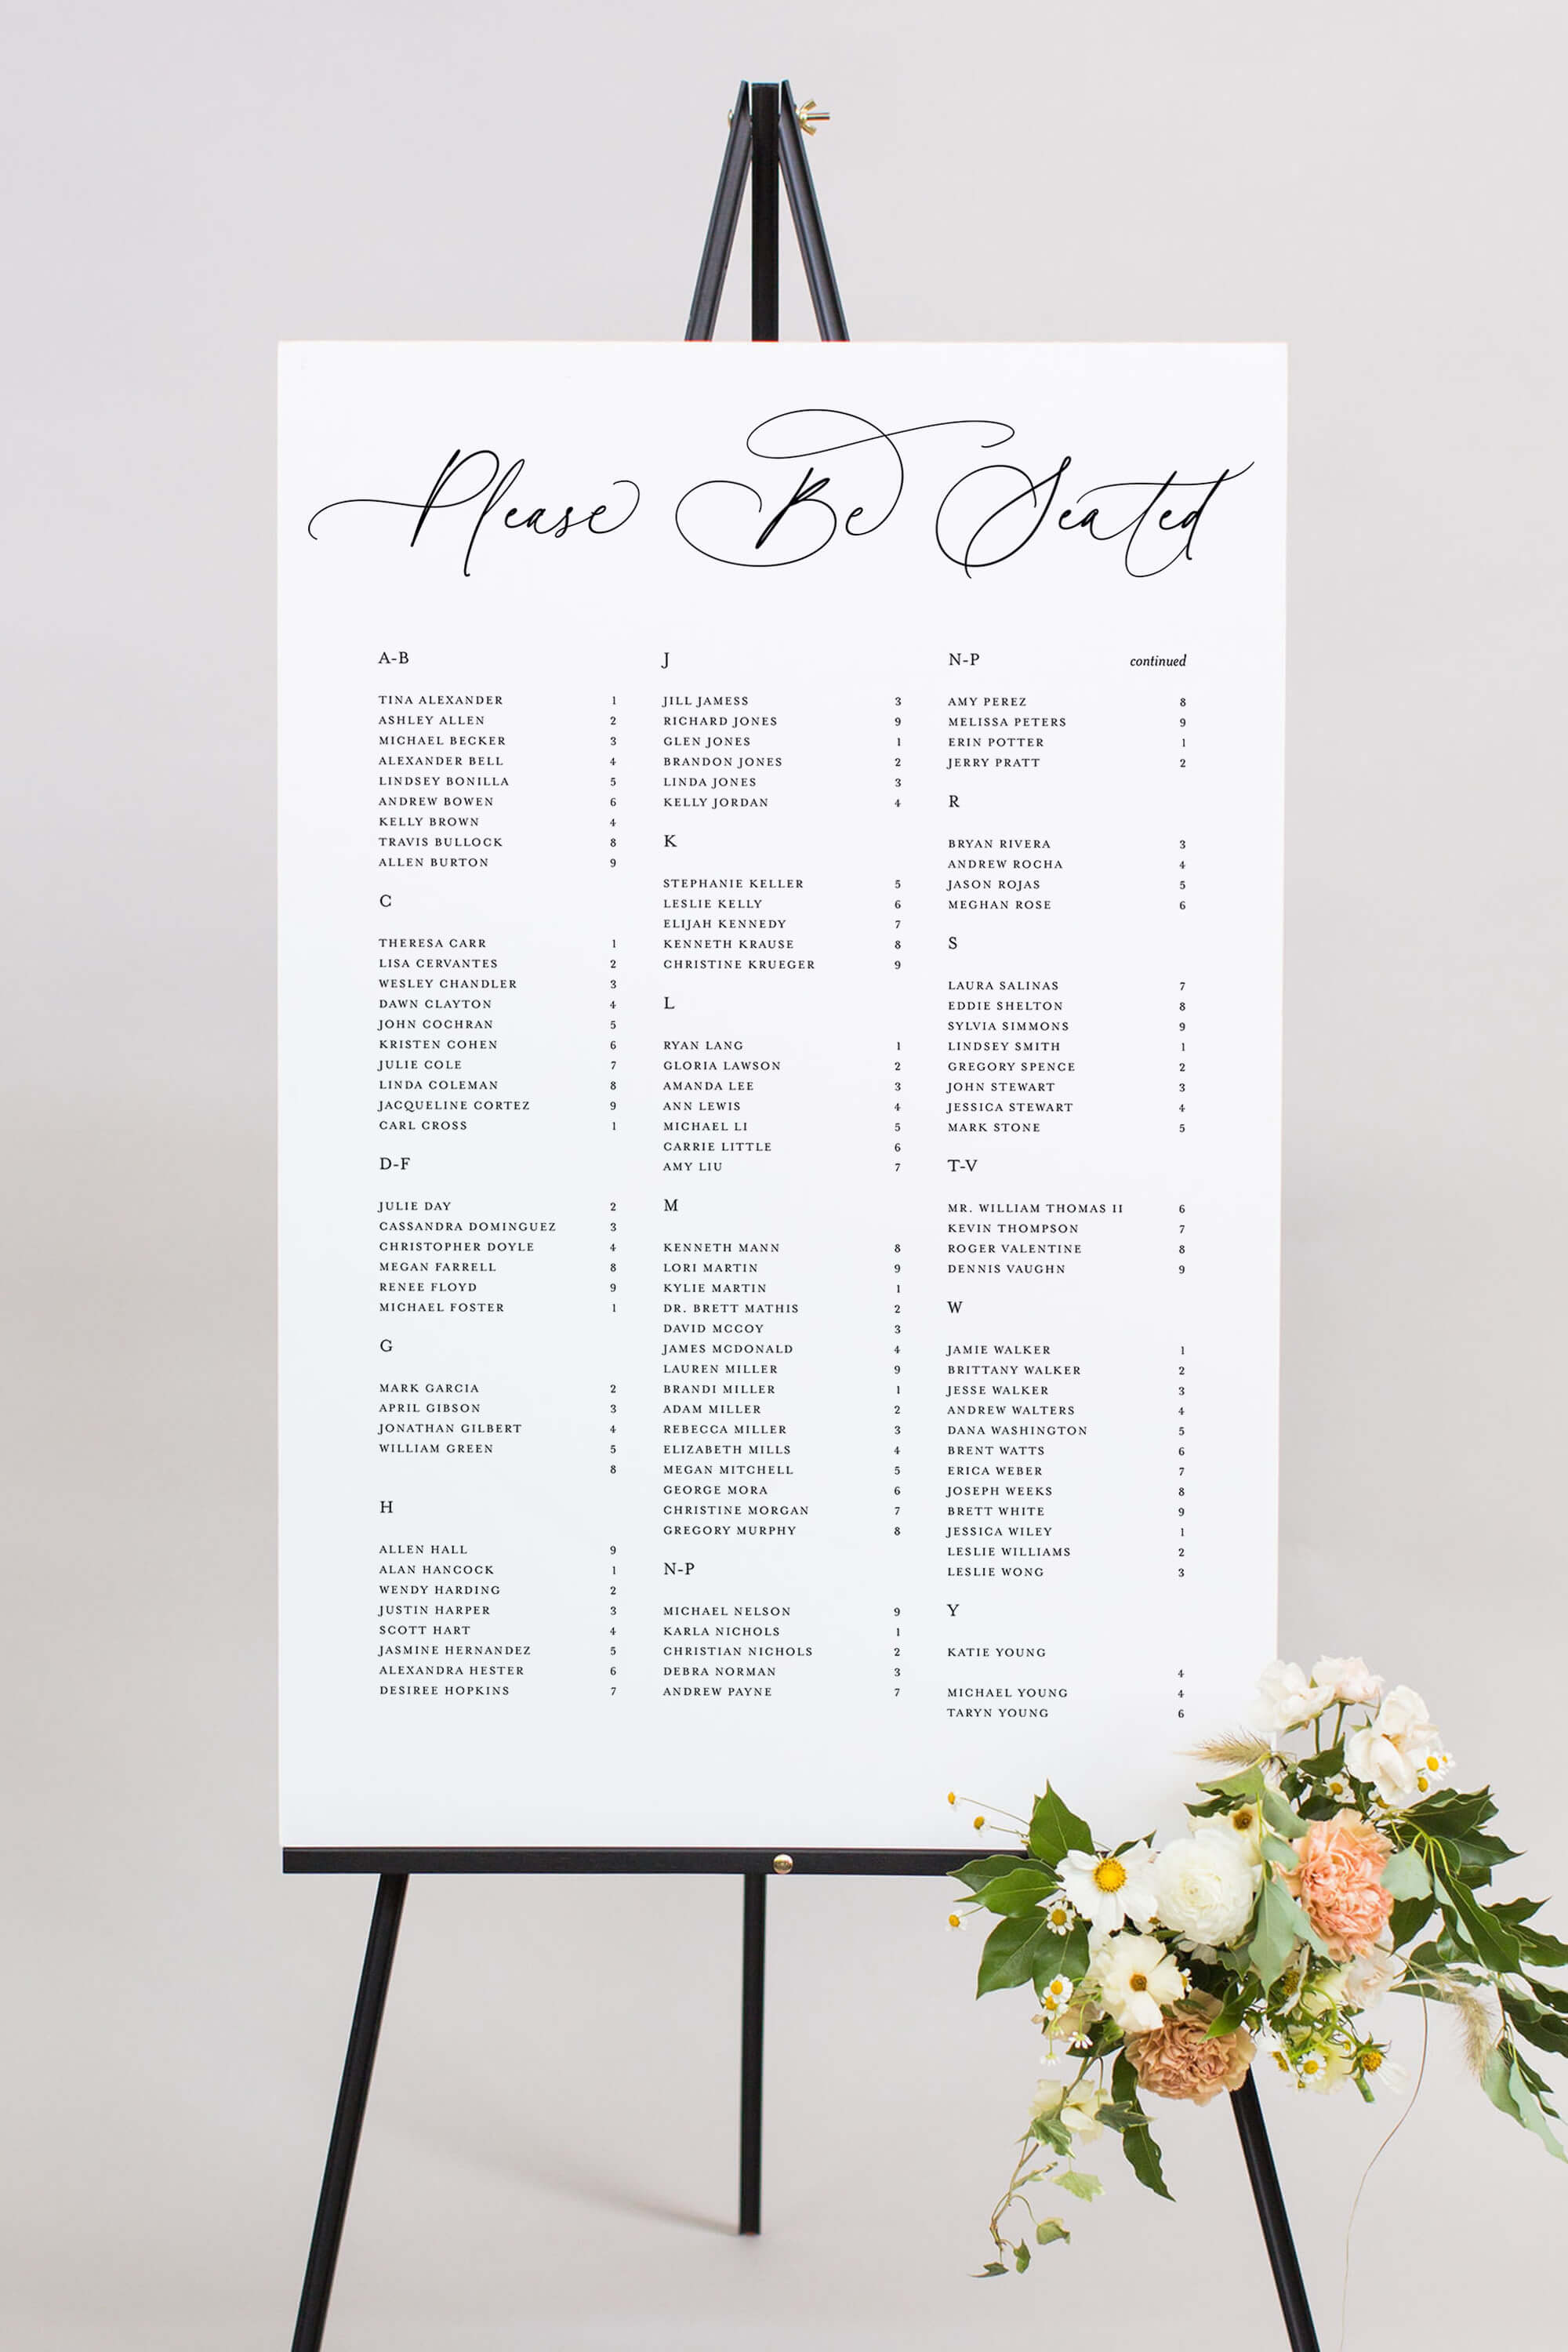 Please Be Seated
A-B
TINA ALEXANDER 1
ASHLEY ALLEN 2
MICHAEL BECKER 3
ALEXANDER BELL 4
LINDSEY BONILLA 5
ANDREW BOWEN 6
KELLY BROWN 4
TRAVIS BULLOCK 8
ALLEN BURTON 9
C
THERESA CARR 1
LISA CERVANTES 2
WESLEY CHANDLER 3
DAWN CLAYTON 4
JOHN COCHRAN 5
KRISTEN COHEN 6
JULIE COLE 7
LINDA COLEMAN 8
JACQUELINE CORTEZ 9
CARL CROSS 1
D-F
JULIE DAY 2
CASSANDRA DOMINGUEZ 3
CHRISTOPHER DOYLE 4
MEGAN FARRELL 8
RENEE FLOYD 9
MICHAEL FOSTER 1
G
MARK GARCIA 2
APRIL GIBSON 3
JONATHAN GILBERT 4
WILLIAM GREEN 5
8
H
ALLEN HALL 9
ALAN HANCOCK 1
WENDY HARDING 2
JUSTIN HARPER 3
SCOTT HART 4
JASMINE HERNANDEZ 5
ALEXANDRA HESTER 6
DESIREE HOPKINS 7
J
JILL JAMESS 3
RICHARD JONES 9
GLEN JONES 1
BRANDON JONES 2
LINDA JONES 3
KELLY JORDAN 4
K
STEPHANIE KELLER 5
LESLIE KELLY 6
ELIJAH KENNEDY 7
KENNETH KRAUSE 8
CHRISTINE KRUEGER 9
L
RYAN LANG 1
GLORIA LAWSON 2
AMANDA LEE 3
ANN LEWIS 4
MICHAEL LI 5
CARRIE LITTLE 6
AMY LIU 7
M
KENNETH MANN 8
LORI MARTIN 9
KYLIE MARTIN 1
DR. BRETT MATHIS 2
DAVID MCCOY 3
JAMES MCDONALD 4
LAUREN MILLER 9
BRANDI MILLER 1
ADAM MILLER 2
REBECCA MILLER 3
ELIZABETH MILLS 4
MEGAN MITCHELL 5
GEORGE MORA 6
CHRISTINE MORGAN 7
GREGORY MURPHY 8
N-P
MICHAEL NELSON 9
KARLA NICHOLS 1
CHRISTIAN NICHOLS 2
DEBRA NORMAN 3
ANDREW PAYNE 7
N-P continued
AMY PEREZ 8
MELISSA PETERS 9
ERIN POTTER 1
JERRY PRATT 2
R
BRYAN RIVERA 3
ANDREW ROCHA 4
JASON ROJAS 5
MEGHAN ROSE 6
S
LAURA SALINAS 7
EDDIE SHELTON 8
SYLVIA SIMMONS 9
LINDSEY SMITH 1
GREGORY SPENCE 2
JOHN STEWART 3
JESSICA STEWART 4
MARK STONE 5
T-V
MR. WILLIAM THOMAS II 6
KEVIN THOMPSON 7
ROGER VALENTINE 8
DENNIS VAUGHN 9
W
JAMIE WALKER 1
BRITTANY WALKER 2
JESSE WALKER 3
ANDREW WALTERS 4
DANA WASHINGTON 5
BRENT WATTS 6
ERICA WEBER 7
JOSEPH WEEKS 8
BRETT WHITE 9
JESSICA WILEY 1
LESLIE WILLIAMS 2
LESLIE WONG 3
Y
KATIE YOUNG
4
MICHAEL YOUNG 4
TARYN YOUNG 6